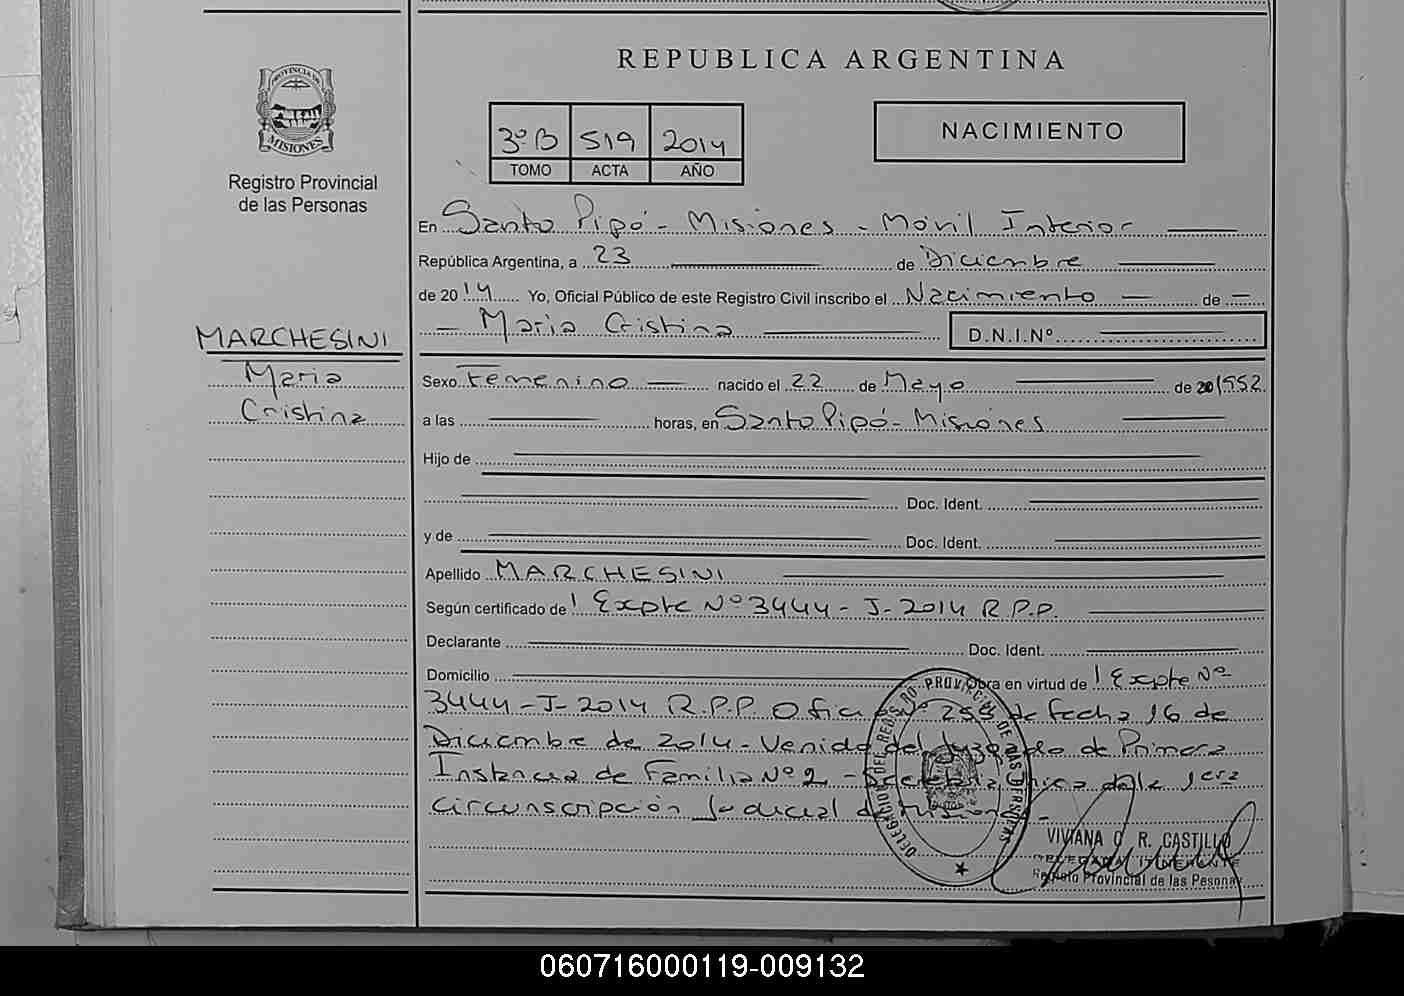 REPUBLICA ARGENTINA
PROVINCIA DE
MISIONES
Registro Provincial
de las Personas
3º B 519 2014
TOMO ACTA AÑO
NACIMIENTO
En Santo Pipó - Misiones - Móvil Interior
República Argentina, a 23 de Diciembre
de 2014 Yo, Oficial Público de este Registro Civil inscribo el Nacimiento de
Maria Cristina D.N.I.Nº
MARCHESINI
Maria
Cristina
Sexo Femenino nacido el 22 de Mayo de 1952
a las horas, en Santo Pipó - Misiones
Hijo de
Doc. Ident.
y de Doc. Ident.
Apellido MARCHESINI
Según certificado de Expte Nº 3444 - J - 2014 R.P.P.
Declarante Doc. Ident.
Domicilio Obra en virtud de Expte Nº
3444 - J - 2014 R.P.P Oficio Nº de fecha 16 de
Diciembre de 2014 - Venido del Juzgado de Primera
Instancia de Familia Nº 2 - Secretaria Unica de la 1era
circunscripción Judicial de Misiones -
DELEGACION DEL REGISTRO PROVINCIAL DE LAS PERSONAS
VIVIANA O R. CASTILLO
DELEGADA ITINERANTE
Registo Provincial de las Pesonas
060716000119-009132